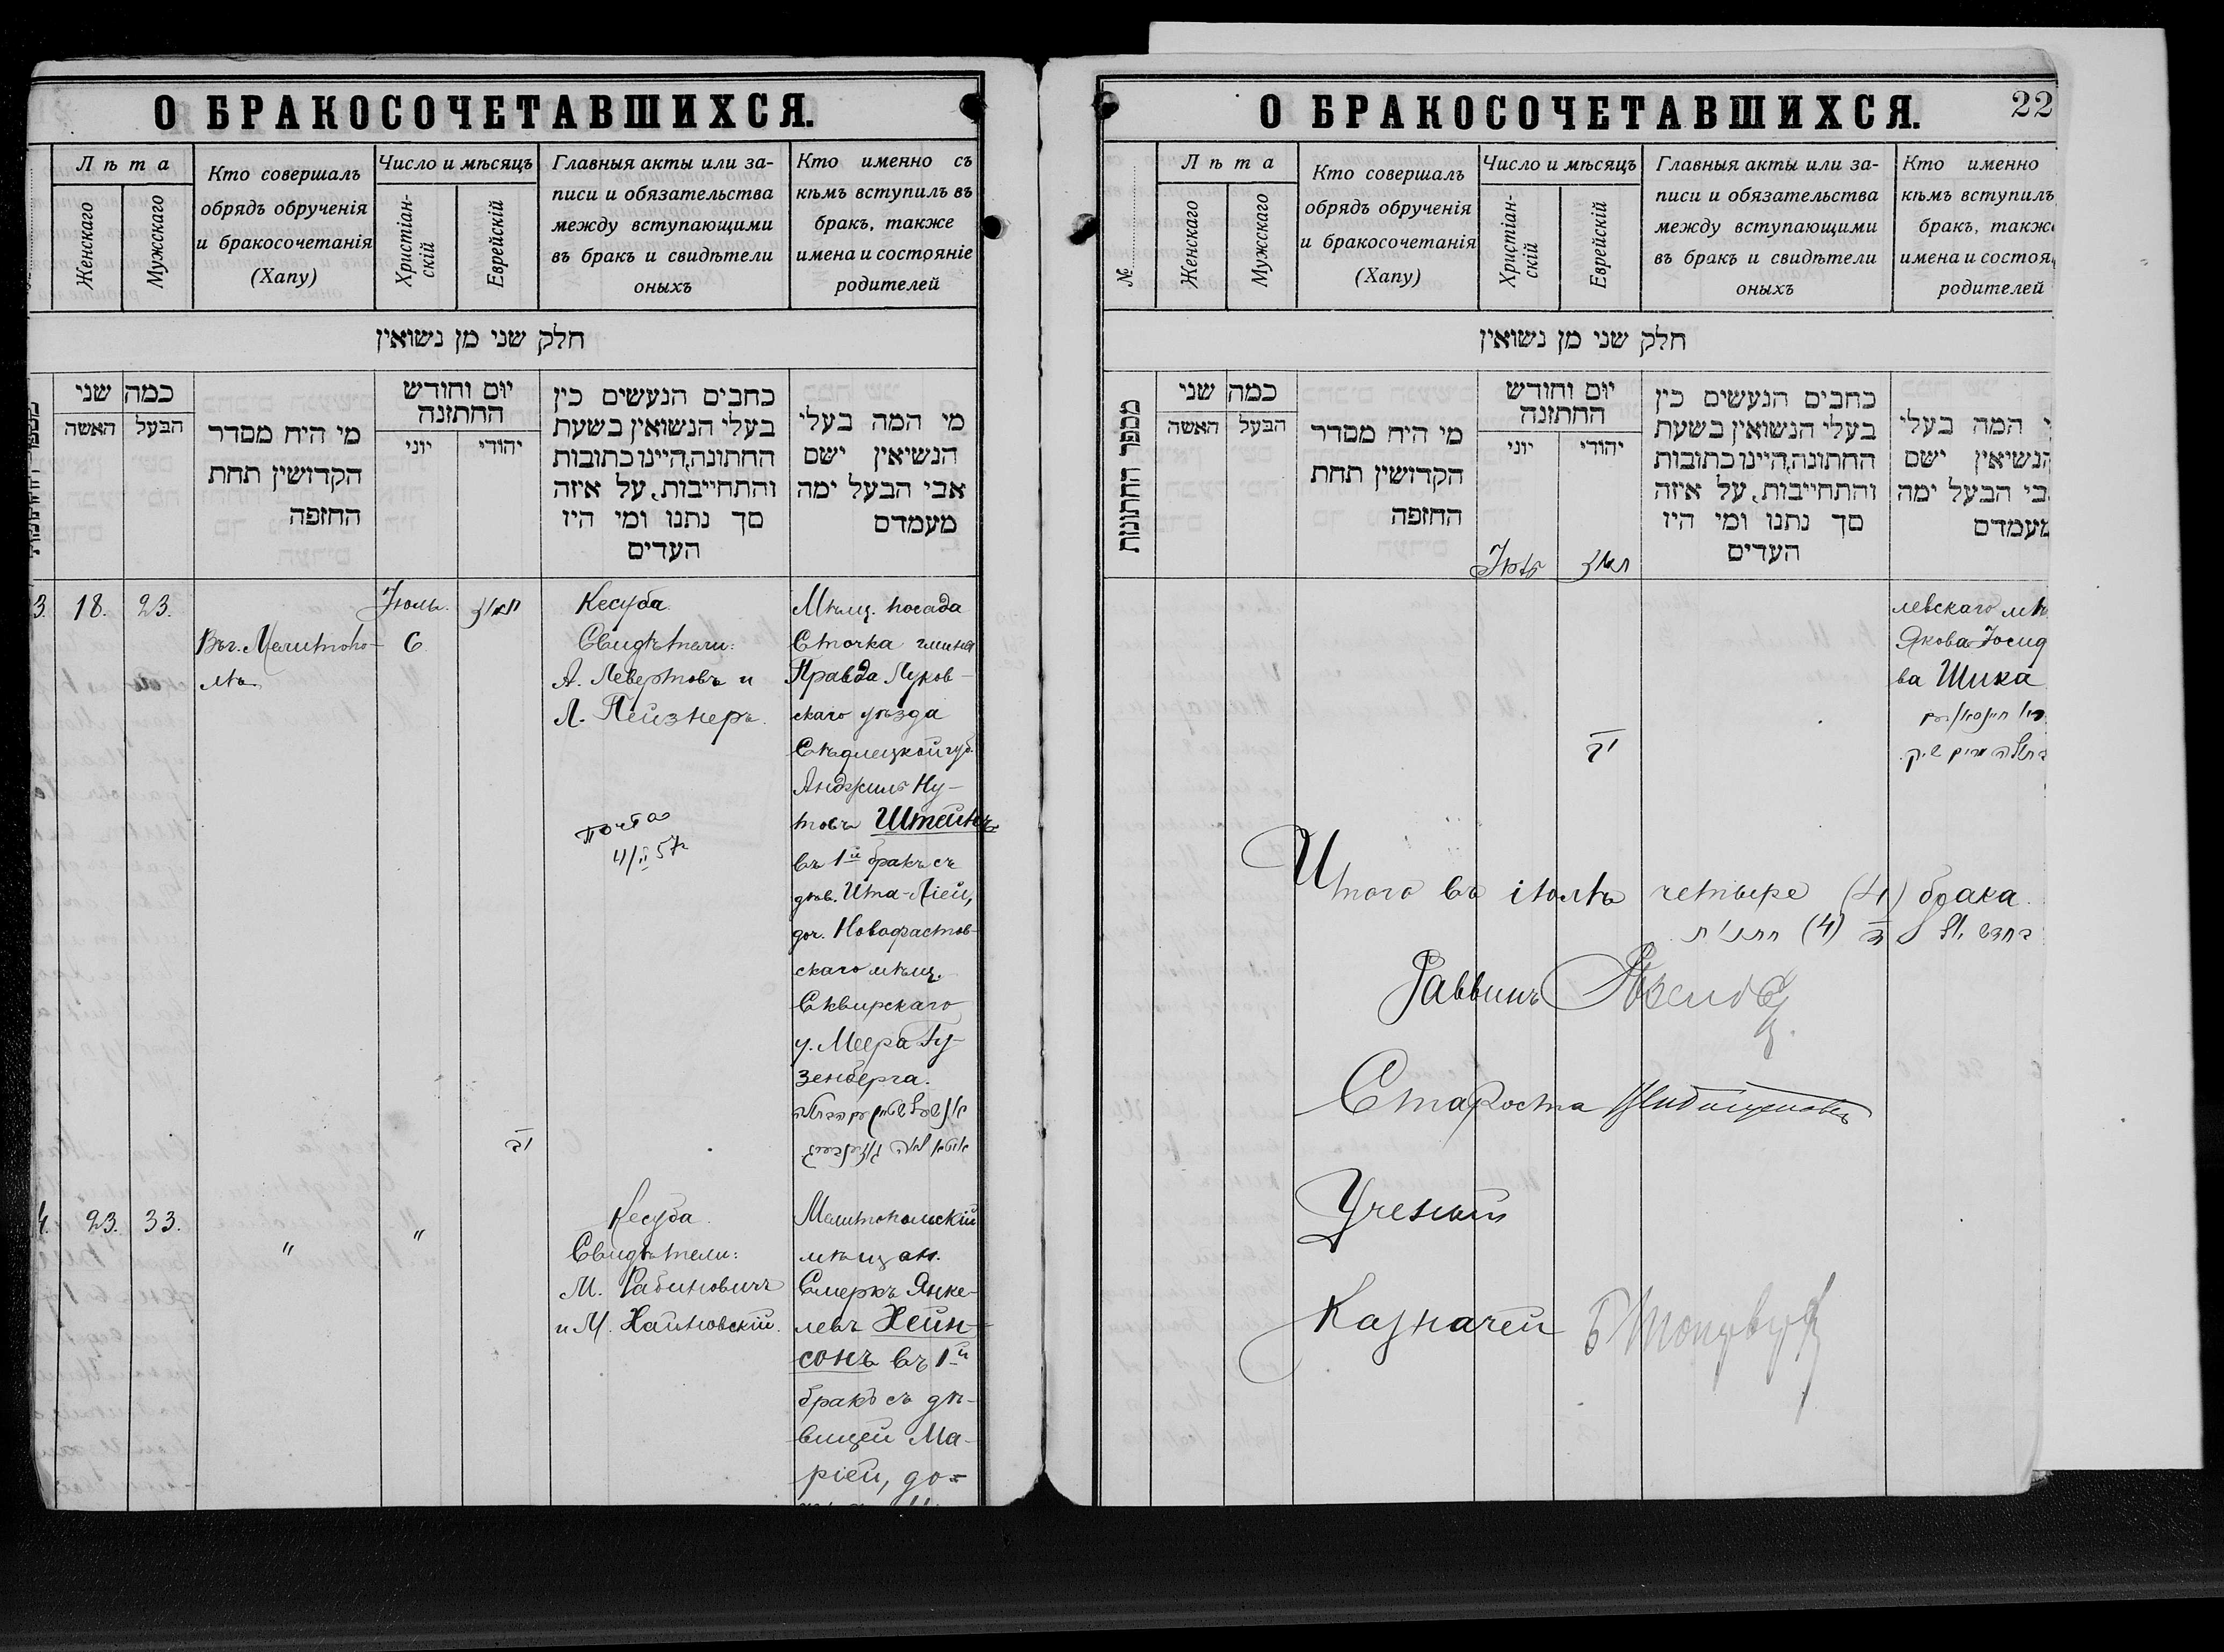 О БРАКОСОЧЕТАВШИХСЯ.
Лѣта
Женскаго
Мужскаго
Кто совершалъ
обрядъ обрученія
и бракосочетанія
(Хапу)
Число и мѣсяцъ
Христіан-
скій
Еврейскій
Главныя акты или за-
писи и обязательства
между вступающими
въ бракъ и свидѣтели
оныхъ
Кто именно съ
кѣмъ вступилъ въ
бракъ, также
имена и состояніе
родителей
חלק שני מן נשואין
כמה שני
האשה
הבעל
מי היח מסדר
הקדושין תחת
החזפה
יום וחודש
החתזנה
יוני
יהודי
כחבים הנעשים כין
בעלי הנשואין בשעת
החתונה,היינו כתובות
והתחייבות, על איזה
סך נתנו ומי היז
העדים
מי המה בעלי
הנשיאין ישם
אבי הבעל ימה
מעמדם
3. 18. 23.
Въ г. Мелитопо-
лѣ
Іюль.
6
תמוז
יב
Кесуба
Свидѣтели:
А. Левертовъ и
Л. Пейзнеръ.
4/II 57
Мѣщ. посада
Сточка гмины
Правда Луков-
скаго уѣзда
Сѣдлецкой губ.
Анджиль Ну-
товъ Штейнъ
въ 1й бракъ съ
дѣв. Ита-Лiей,
доч. Новофастов-
скаго мѣщ.
Сквирскаго
у. Меера Гу-
зенберга.
4. 23. 33.
"
"
Кесуба
Свидѣтели:
М. Рабиновичъ
и М. Хайновскій.
Мелитопольскій
мѣщан.
Смеркъ Янке-
левъ Хейн-
сонъ въ 1й
бракъ съ дѣ-
вицей Ма-
ріей, до-
О БРАКОСОЧЕТАВШИХСЯ.
22
№
Лѣта
Женскаго
Мужскаго
Кто совершалъ
обрядъ обрученія
и бракосочетанія
(Хапу)
Число и мѣсяцъ
Христіан-
скій
Еврейскій
Главныя акты или за-
писи и обязательства
между вступающими
въ бракъ и свидѣтели
оныхъ
Кто именно
кѣмъ вступилъ
бракъ, также
имена и состоя
родителей
חלק שני מן נשואין
מספר החתונות
כמה שני
האשה
הבעל
מי היח מסדר
הקדושין תחת
החזפה
יום וחודש
החתזנה
יוני
יהודי
כחבים הנעשים כין
בעלי הנשואין בשעת
החתונה,היינו כתובות
והתחייבות, על איזה
סך נתנו ומי היז
העדים
י המה בעלי
הנשיאין ישם
בי הבעל ימה
מעמדם
תמוז
יב
левскаго мѣ
Якова Іосид
ва Шика
Итого въ іюлѣ четыре (4) брака.
Раввинъ
Староста
Ученый
Казначей